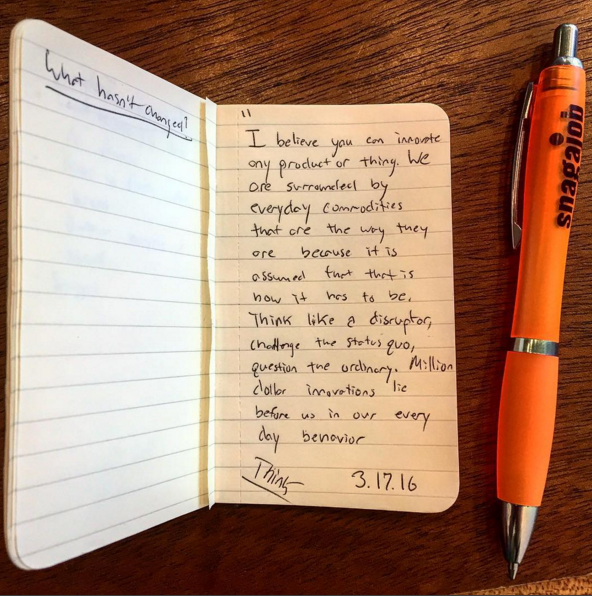 What hasn't changed?
"
I believe you can innovate
any product or thing. We
are surrounded by
everyday commodities
that are the way they
are because it is
assumed that that is
how it has to be.
Think like a disruptor,
challenge the status quo,
question the ordinary. Million
dollar innovations lie
before us in our every
day behavior
Think 3.17.16
snagajob